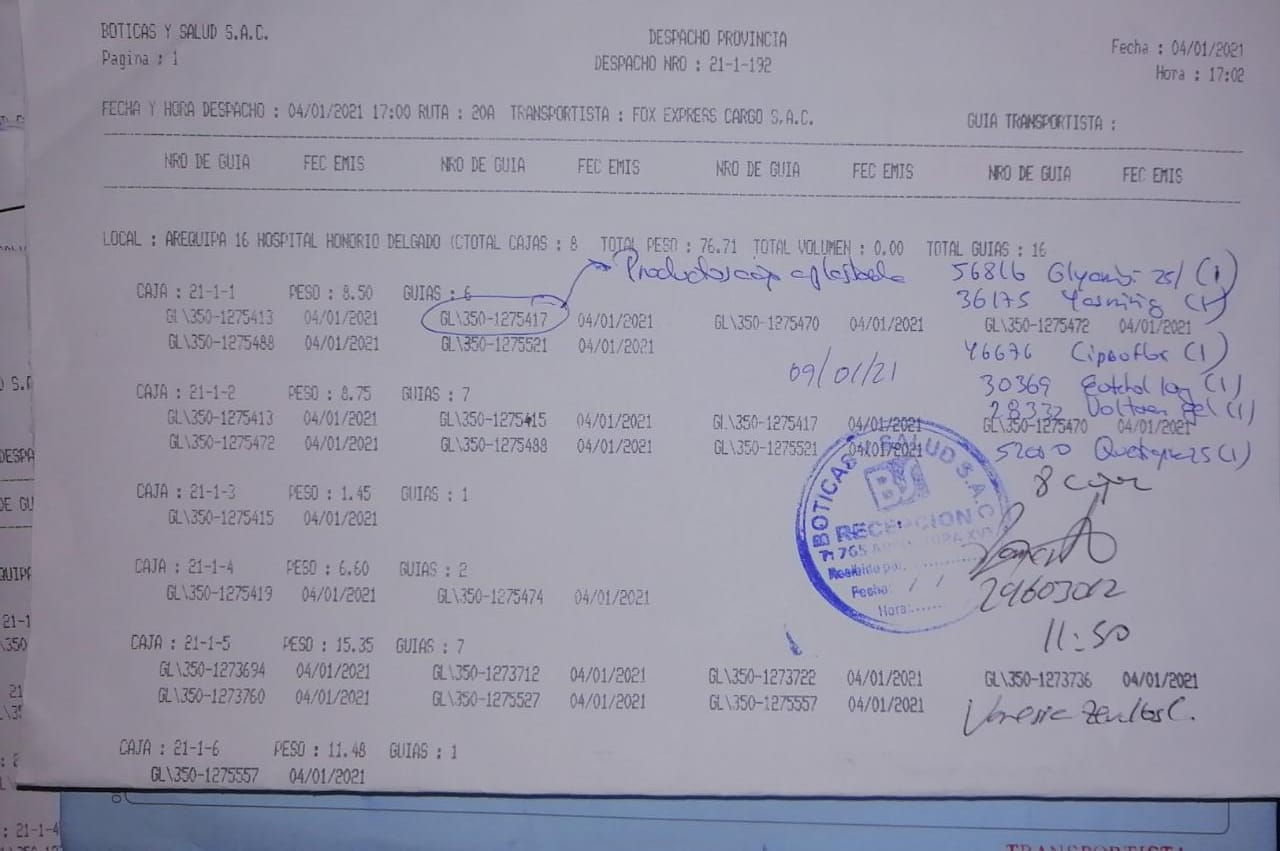 BOTICAS Y SALUD S.A.C.
Pagina : 1
DESPACHO PROVINCIA
DESPACHO NRO : 21-1-192
Fecha : 04/01/2021
Hora : 17:02
FECHA Y HORA DESPACHO : 04/01/2021 17:00 RUTA : 20A TRANSPORTISTA : FOX EXPRESS CARGO S.A.C.
GUIA TRANSPORTISTA :
NRO DE GUIA FEC EMIS NRO DE GUIA FEC EMIS NRO DE GUIA FEC EMIS NRO DE GUIA FEC EMIS
LOCAL : AREQUIPA 16 HOSPITAL HONORIO DELGADO (CTOTAL CAJAS : 8 TOTAL PESO : 76.71 TOTAL VOLUMEN : 0.00 TOTAL GUIAS : 16
Productos caja aplastada
56816 (1)
36175 (1)
CAJA : 21-1-1 PESO : 8.50 GUIAS : 6
GL\350-1275413 04/01/2021 GL\350-1275417 04/01/2021 GL\350-1275470 04/01/2021 GL\350-1275472 04/01/2021
GL\350-1275488 04/01/2021 GL\350-1275521 04/01/2021
46676 (1)
09/01/21
30369 (1)
28332 Voltaren gel (1)
CAJA : 21-1-2 PESO : 8.75 GUIAS : 7
GL\350-1275413 04/01/2021 GL\350-1275415 04/01/2021 GL\350-1275417 04/01/2021 GL\350-1275470 04/01/2021
GL\350-1275472 04/01/2021 GL\350-1275488 04/01/2021 GL\350-1275521 04/01/2021
(1)
8
CAJA : 21-1-3 PESO : 1.45 GUIAS : 1
GL\350-1275415 04/01/2021
BOTICAS Y SALUD S.A.C.
BS
RECEPCION
Recibido por:
Fecha: / /
Hora:......
29603012
11:50
CAJA : 21-1-4 PESO : 6.60 GUIAS : 2
GL\350-1275419 04/01/2021 GL\350-1275474 04/01/2021
CAJA : 21-1-5 PESO : 15.35 GUIAS : 7
GL\350-1273694 04/01/2021 GL\350-1273712 04/01/2021 GL\350-1273722 04/01/2021 GL\350-1273736 04/01/2021
GL\350-1273760 04/01/2021 GL\350-1275527 04/01/2021 GL\350-1275557 04/01/2021
CAJA : 21-1-6 PESO : 11.48 GUIAS : 1
GL\350-1275557 04/01/2021
: 21-1-4
TRANSPORTISTA